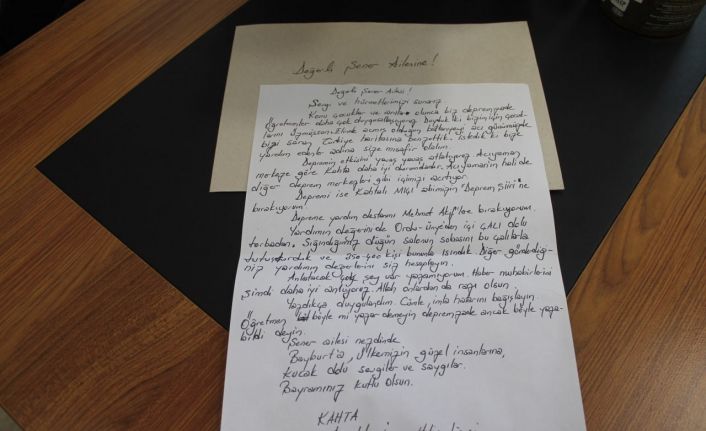 Değerli Şener Ailesine!
Değerli Şener Ailesi!
Sevgi ve hürmetlerimizi sunarız
Konu çocuklar ve anılar olunca biz depremzede
Öğretmenler daha çok duygusallaşıyoruz. Duyduk ki bizim için çocuk
bizi saran Türkiye haritasına benzettik. İstedik ki bizle
yardım edenler adına size misafir olalım.
Depremin etkisini yavaş yavaş atlatıyoruz. Adıyaman
merkeze göre Kahta daha iyi durumdadır. Adıyaman'ın hali de
diğer deprem merkezleri gibi içimizi acıtıyor.
Depremi ise Kahtalı MIÇI abimizin "Deprem Şiiri"ne
bırakıyorum!
Depreme yardım destanını Mehmet Akif'lere bırakıyorum.
Yardımın değerini de Ordu-Ünyeden içi ÇALI dolu
torbadan. Sığındığımız düğün salonun sobasını bu çalılarla
tutuşturduk ve 350-400 kişi bununla ısındık. Diğer gönderdiği-
niz yardımın değerlerini siz hesaplayın.
Anlatacak çok şey var yazamıyorum. Haber muhabirlerini
şimdi daha iyi anlıyorum. Allah onlardan da razı olsun.
Yazdıkça duygulandım. Cümle, imla hatamı bağışlayın
Öğretmen böyle mi yazar demeyin depremzede ancak böyle yaza-
bildi deyin.
Şener ailesi nezdinde
Bayburt'a, Ülkemizin güzel insanlarına,
kucak dolu sevgiler ve saygılar.
Bayramınız kutlu olsun.
KAHTA